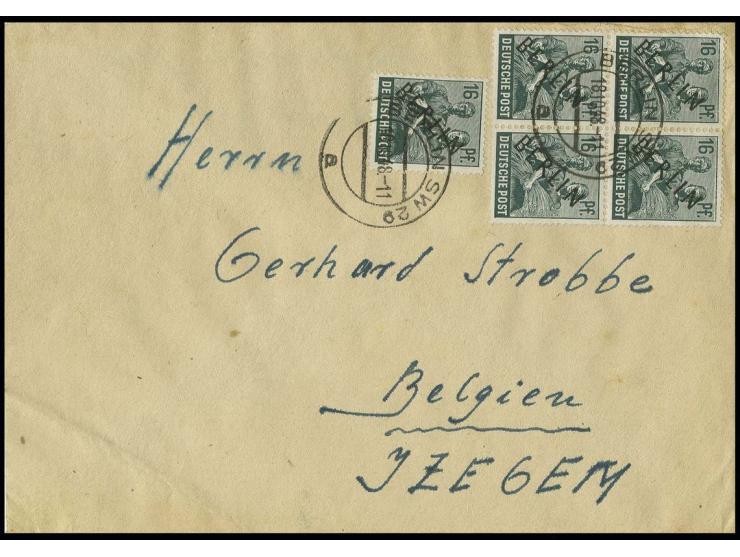 Herrn
Gerhard Strobbe
Belgien
IZEGEM
DEUTSCHE POST
16 Pf.
BERLIN
DEUTSCHE POST
16 Pf.
BERLIN
DEUTSCHE POST
16 Pf.
BERLIN
DEUTSCHE POST
16 Pf.
BERLIN
DEUTSCHE POST
16 Pf.
BERLIN
SW 29
a
BERLIN
a